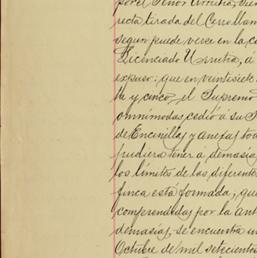 por el Señor Urrutia, sien
recta tirada del Cerro llam
seguro puede verse en la co
Licenciado Urrutia, á
expuso: que en veintisiete
ta y cinco, el Supremo
omnímodas cedió a su S
de Encinillas y anejas tod
pudiera tener á demasía,
los límites de las diferentes
finca está formada, que
comprendidas por la ant
demasías, se encuentra u
Octubre de mil setecientos